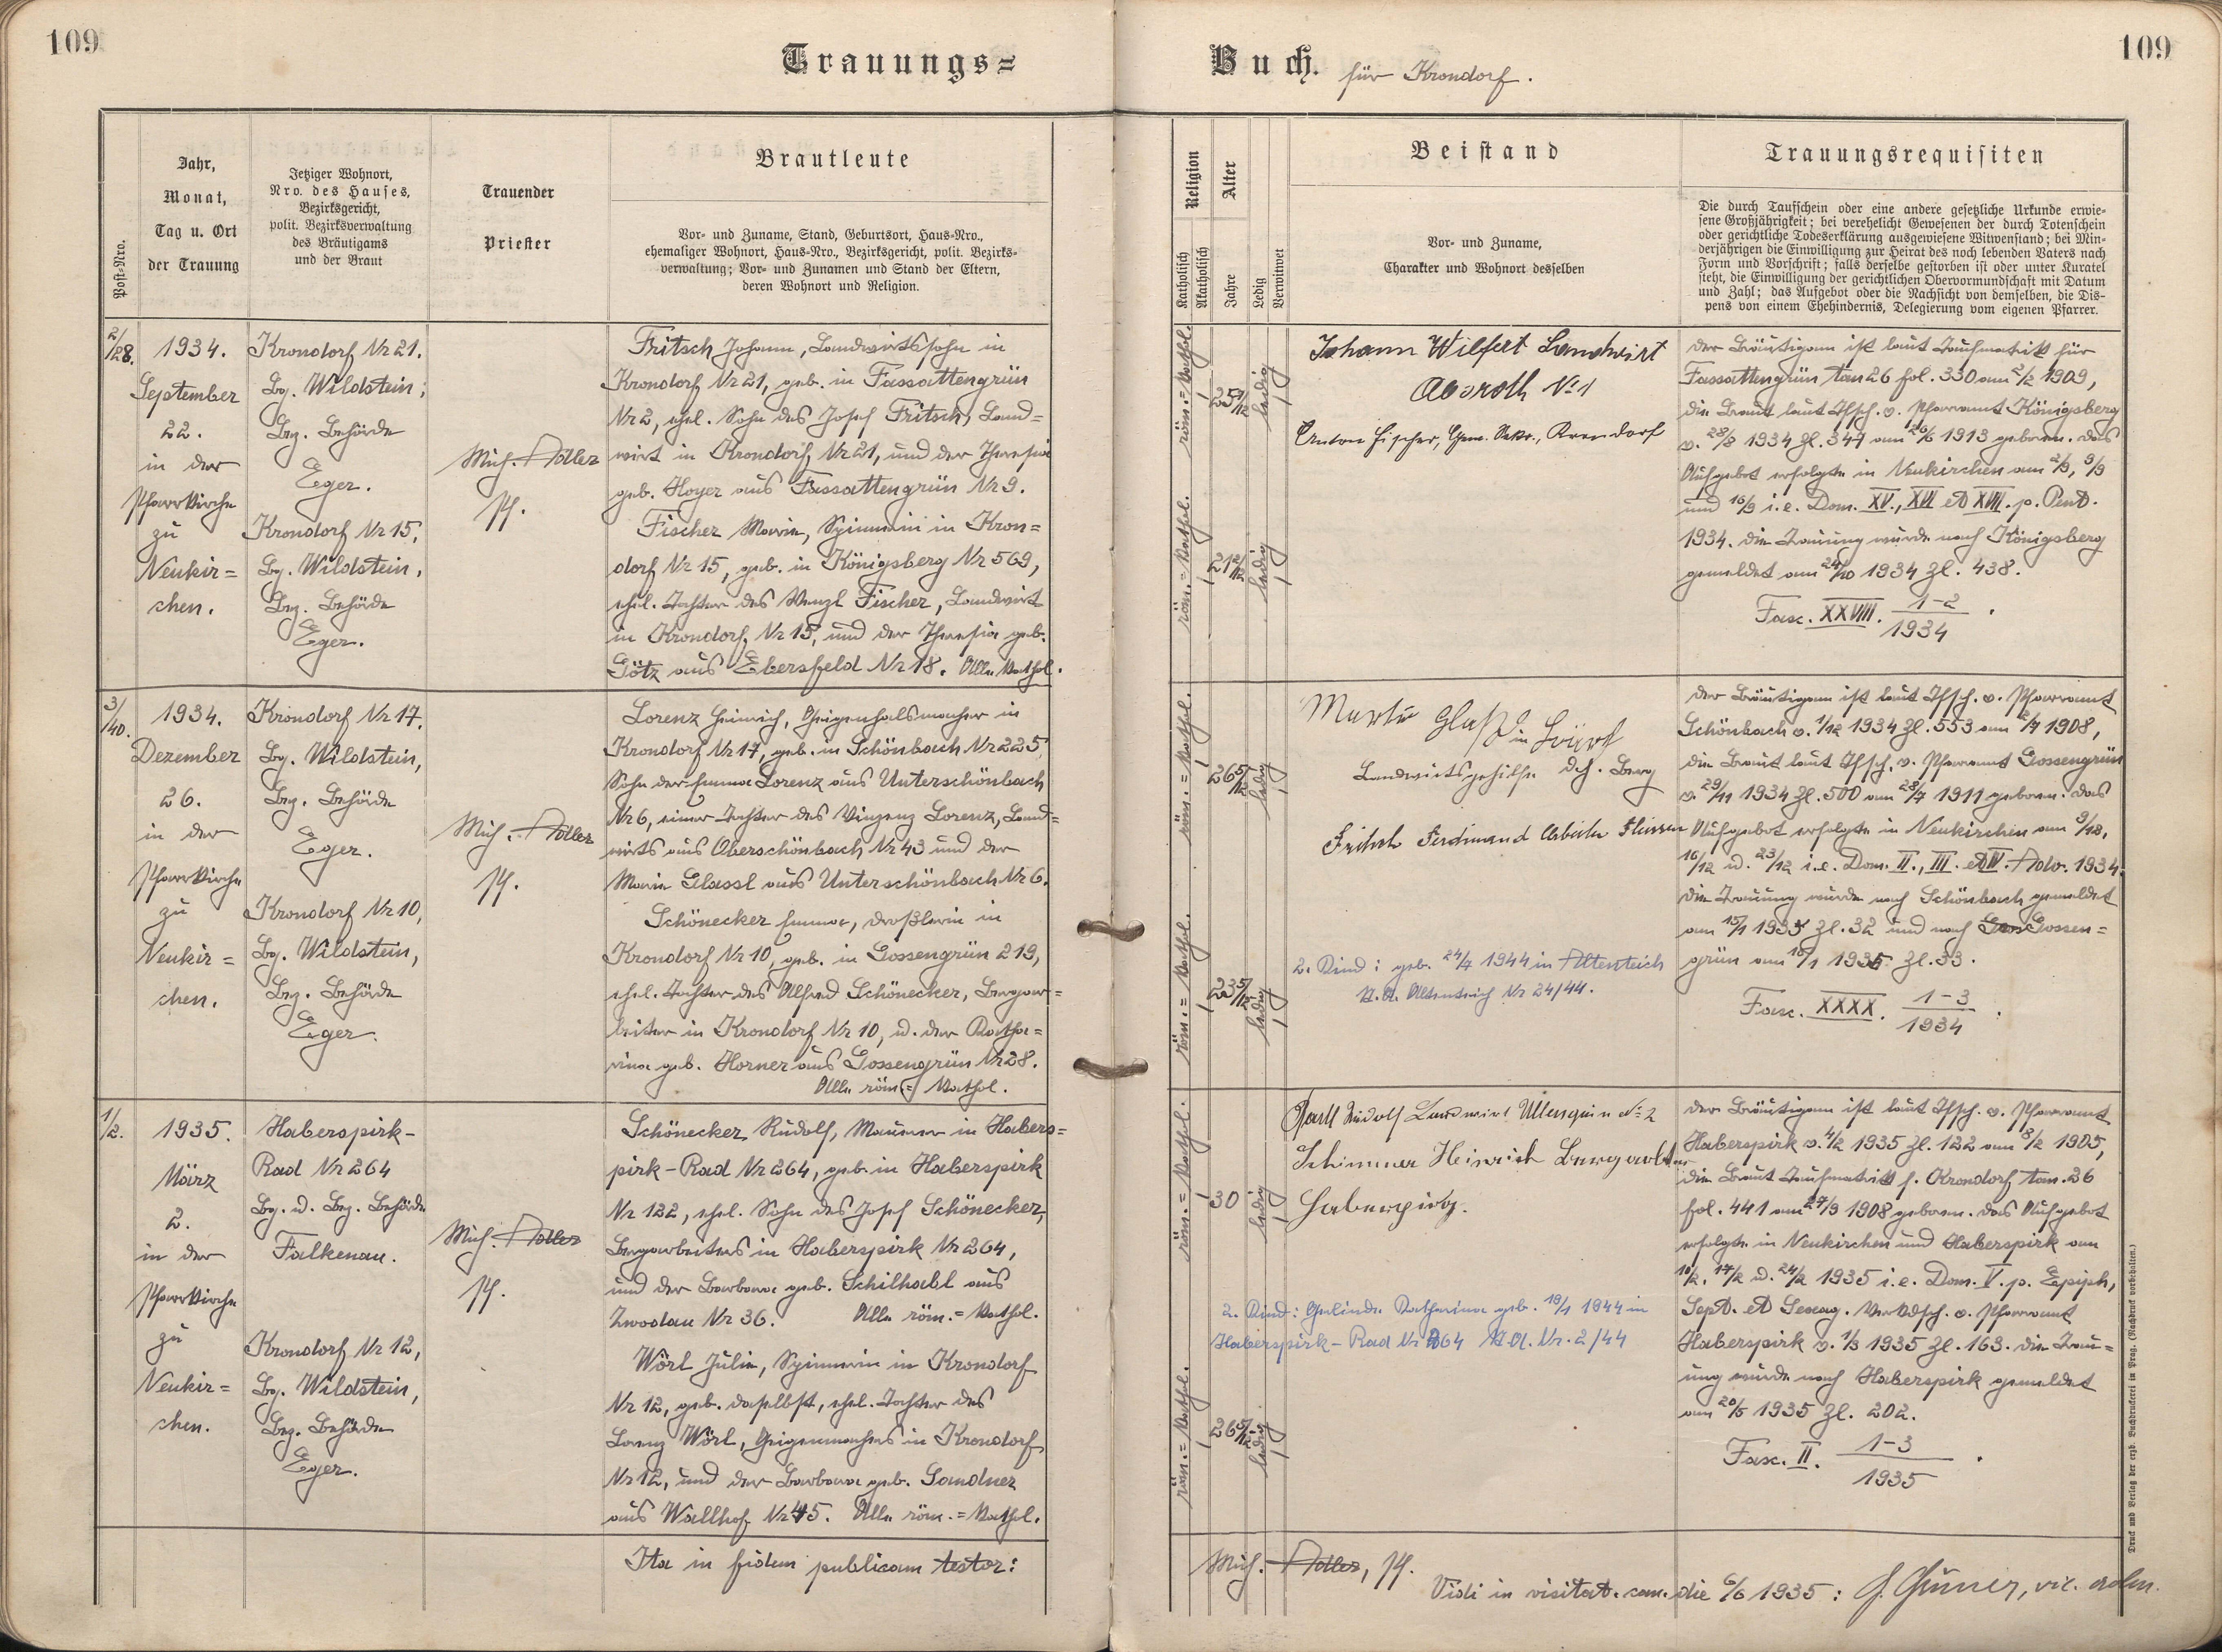 109
Trauungs=
Buch. für Krondorf.
109
Post-Nro.
Jahr,
Monat,
Tag u. Ort
der Trauung
Jetziger Wohnort,
Nro. des Hauses,
Bezirksgericht,
polit. Bezirksverwaltung
des Bräutigams
und der Braut
Trauender
Priester
Brautleute
Vor- und Zuname, Stand, Geburtsort, Haus-Nro.,
ehemaliger Wohnort, Haus-Nro., Bezirksgericht, polit. Bezirks-
verwaltung; Vor- und Zunamen und Stand der Eltern,
deren Wohnort und Religion.
Religion
Katholisch
Akatholisch
Alter
Jahre
Ledig
Verwitwet
Beistand
Vor- und Zuname,
Charakter und Wohnort desselben
Trauungsrequisiten
Die durch Taufschein oder eine andere gesetzliche Urkunde erwie-
sene Großjährigkeit; bei verehelicht Gewesenen der durch Totenschein
oder gerichtliche Todeserklärung ausgewiesene Witwenstand; bei Min-
derjährigen die Einwilligung zur Heirat des noch lebenden Vaters nach
Form und Vorschrift; falls derselbe gestorben ist oder unter Kuratel
steht, die Einwilligung der gerichtlichen Obervormundschaft mit Datum
und Zahl; das Aufgebot oder die Nachsicht von demselben, die Dis-
pens von einem Ehehindernis, Delegierung vom eigenen Pfarrer.
2/28.
1934.
September
22.
in der
Pfarrkirche
zu
Neukir=
chen.
Krondorf Nr 21.
Bg. Wildstein;
Bez. Behörde
Eger.
Krondorf Nr 15,
Bg. Wildstein,
Bez. Behörde
Eger.
Mich. Adler
Pf.
Fritsch Johann, Landwirtssohn in
Krondorf Nr 21, geb. in Fassattengrün
Nr 2, ehel. Sohn des Josef Fritsch, Land=
wirt in Krondorf Nr 21, und der Theresia
geb. Hoyer aus Fassattengrün Nr 9.
Fischer Marie, Spinnerin in Kron=
dorf Nr 15, geb. in Königsberg Nr 569,
ehel. Tochter des Wenzl Fischer, Landwirt
in Krondorf Nr 15, und der Theresia geb.
Götz aus Ebersfeld Nr 18. Alle kathol.
röm.=kathol.
25 7/12
ledig
röm.=kathol.
21 2/12
ledig
Johann Wilfert Landwirt
Absroth No 1
Anton Fischer, Gem. Sekr., Krondorf
Der Bräutigam ist laut Taufmatrik für
Fassattengrün tom 26 fol. 330 am 2/2 1909,
die Braut laut Tfsch. v. Pfarramt Königsberg
v. 28/8 1934 Zl. 347 am 26/6 1913 geboren. Das
Aufgebot erfolgte in Neukirchen am 2/9, 9/9
und 16/9 i.e. Dom. XV., XVI et XVII. p. Pent.
1934. Die Trauung wurde nach Königsberg
gemeldet am 24/10 1934 Zl. 438.
Fasc. XXVIII. 1-2/1934.
3/40.
1934.
Dezember
26.
in der
Pfarrkirche
zu
Neukir=
chen.
Krondorf Nr 17.
Bg. Wildstein,
Bez. Behörde
Eger.
Krondorf Nr 10,
Bg. Wildstein,
Bez. Behörde
Eger.
Mich. Adler
Pf.
Lorenz Heinrich, Geigenhalsmacher in
Krondorf Nr 17, geb. in Schönbach Nr 225,
Sohn der Emma Lorenz aus Unterschönbach
Nr 6, einer Tochter des Vinzenz Lorenz, Land=
wirts aus Oberschönbach Nr 43 und der
Marie Glassl aus Unterschönbach Nr 6.
Schönecker Emma, Droßlerin in
Krondorf Nr 10, geb. in Gossengrün 219,
ehel. Tochter des Alfred Schönecker, Bergar=
beiter in Krondorf Nr 10, u. der Katha=
rina geb. Horner aus Gossengrün Nr 28.
Alle röm.= kathol.
röm.=kathol.
26 5/12
ledig
röm.=kathol.
23 5/12
ledig
Martin Glaß in
Landwirtsgehilfe
Fritsch Ferdinand Arbeiter
2. Kind: geb. 24/4 1944 in Altenteich
St.A. Altenteich Nr 24/44.
Der Bräutigam ist laut Tfsch. v. Pfarramt
Schönbach v. 1/12 1934 Zl. 553 am 1908,
die Braut laut Tfsch. v. Pfarramt Gossengrün
v. 29/11 1934 Zl. 500 am 28/7 1911 geboren. Das
Aufgebot erfolgte in Neukirchen am 9/12,
16/12 u. 23/12 i.e. Dom. II., III. et IV. Adv. 1934.
Die Trauung wurde nach Schönbach gemeldet
am 15/1 1935 Zl. 32 und nach Gossen=
grün am 15/1 1935 Zl. 33.
Fasc. XXXX. 1-3/1934.
1/2.
1935.
März
2.
in der
Pfarrkirche
zu
Neukir=
chen.
Haberspirk-
Rad Nr 264
Bg. u. Bez. Behörde
Falkenau.
Krondorf Nr 12,
Bg. Wildstein,
Bez. Behörde
Eger.
Mich. Adler
Pf.
Schönecker Rudolf, Maurer in Habers=
pirk-Rad Nr 264, geb. in Haberspirk
Nr 132, ehel. Sohn des Josef Schönecker,
Bergarbeiters in Haberspirk Nr 264,
und der Barbara geb. Schilhabl aus
Zwodau Nr 36. Alle röm.=kathol.
Wörl Julie, Spinnerin in Krondorf
Nr 12, geb. daselbst, ehel. Tochter des
Lorenz Wörl, Geigenmachers in Krondorf
Nr 12, und der Barbara geb. Sandner
aus Wallhof Nr 45. Alle röm.=kathol.
röm.=kathol.
30
ledig
röm.=kathol.
26 5/12
ledig
Rudolf Landwirt Ullersgrün No 2
Schimmer Heinrich Bergarbeiter
Haberspirk.
2. Kind: Gerlinde Katharina geb. 19/1 1944 in
Haberspirk-Rad Nr 264 St.A. Nr. 2/44
Der Bräutigam ist laut Tfsch. v. Pfarramt
Haberspirk v. 4/2 1935 Zl. 122 am 8/2 1905,
die Braut Taufmatrik f. Krondorf tom. 36
fol. 441 am 27/9 1908 geboren. Das Aufgebot
erfolgte in Neukirchen und Haberspirk am
10/2, 17/2 u. 24/2 1935 i.e. Dom. V. p. Epiph,
Sept. et Sexag. Verkdsch. v. Pfarramt
Haberspirk v. 1/3 1935 Zl. 163. Die Trau=
ung wurde nach Haberspirk gemeldet
am 20/5 1935 Zl. 202.
Fasc. II. 1-3/1935.
Ita in fidem publicam testor:
Mich. Adler, Pf.
Vidi in visitat. can. die 6/6 1935: vic. adm.
Druck und Verlag der erzb. Buchdruckerei in Prag. (Nachdruck vorbehalten.)